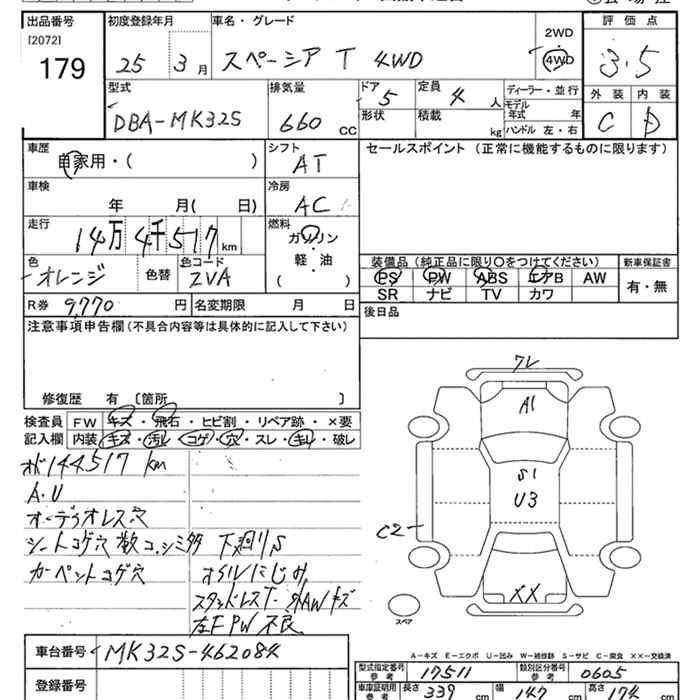 出品番号 初度登録年月 車名・グレード 評価点
[2072] 2WD
179 25 3月 スペーシア T 4WD 4WD 3.5
型式 排気量 ドア 定員 ディーラー・並行 外装 内装
DBA-MK32S 660 CC 5 4人 モデル年式 年 C D
形状 積載 kg ハンドル 左・右
車歴 シフト セールスポイント (正常に機能するものに限ります)
自家用・( ) AT
車検 冷房
年 月( 日) AC
走行 燃料
14万4千517km ガソリン・軽・油
色 色コード ( ) 装備品 (純正品に限り○をつけてください) 新車保証書
オレンジ 色替 ZVA PS PW ABS エアB AW 有・無
SR ナビ TV カワ
R券 9,770 円 名変期限 月 日 後日品
注意事項申告欄(不具合内容等は具体的に記入して下さい)
修復歴 有 〔箇所 〕
検査員 FW キズ・飛石・ヒビ割・リペア跡・×要
記入欄 内装 キズ・汚レ・コゲ・穴・スレ・キレ・破レ
メ144517km
A・U
オーディオレス穴
シートコゲ穴 数コ、シミ多 下廻りS
カーペットコゲ穴 オイルにじみ
スタッドレスT・外AWキズ
左F PW不良
ワレ
A1
S1
U3
C2
XX
スペア
車台番号 MK32S-462084
登録番号
A-キズ E-エクボ U-凹み W-補修跡 S-サビ C-腐食 XX-交換済
型式指定番号 参考 17511 類別区分番号 参考 0605
車庫証明用 参考 長さ 339 cm 幅 147 cm 高さ 174 cm